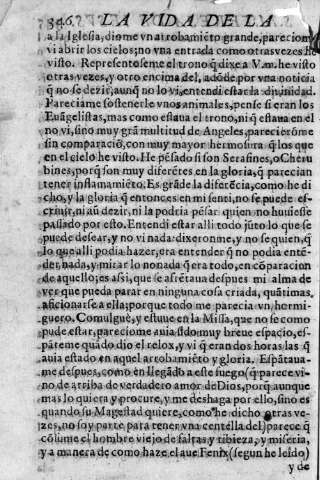 346 LA VIDA DE LA
a la Iglesia, diome vn arrobamiẽto grande, parecıome
vi abrir los cielos; no vna entrada como otras vezes he
visto. Representoseme el trono q̃ dixe a V.m. he visto
otras vezes, y otro encima del, adõde por vna noticia
q̃ no se dezir, aunq̃ no lo vi, entendi estar la diuinidad.
Pareciame sostenerle vnos animales, pense si eran los
Euãgelistas, mas como estaua el trono, ni q̃ estaua en el
no vi, sino muy grã multitud de Angeles, pareciẽrome
sin comparaciõ, con muy mayor hermosura q̃ los que
en el cielo he visto. He pẽsado si son Serafines, o Cheru
bines, porq̃ son muy diferẽtes en la gloria, q̃ parecian
tener inflamamiẽto. Es grãde la diferẽcia, como he di
cho, y la gloria q̃ entonces en mi senti, no se puede es-
criuir, ni aũ dezir, ni la podria pẽsar quien no huuiesse
passado por esto. Entendi estar alli todo jũto lo que se
puede desear, y no vi nada: dixeronme, y no se quien, q̃
lo que alli podia hazer, era entender q̃ no podia entẽ-
der, nada, y mirar lo nonada q̃ era todo, en cõparacion
de aquello; es assi, que se afrẽtaua despues mi alma de
ver que pueda parar en ninguna cosa criada, quãtimas,
aficionarse a ella; porque todo me parecia vn hormi-
guero. Comulguè, y estuue en la Missa, que no se como
pude estar, pareciome auia sido muy breue espacio, es-
pãteme quãdo dio el relox, y vi q̃ eran dos horas las q̃
auia estado en aquel arrobamiẽto y gloria. Espãtaua-
me despues, como en llegãdo a este fuego (q̃ parece vi-
no de arriba de verdadero amor de Dios, porq̃ aunque
mas lo quiera y procure, y me deshaga por ello, sino es
quando su Magestad quiere, como he dicho otras ve-
zes, no soy parte para tener vna centella del) parece q̃
cõsume el hombre viejo de faltas, y tibieza, y miseria,
y a manera de como haze el aue Fenix (segun he leido)
y de